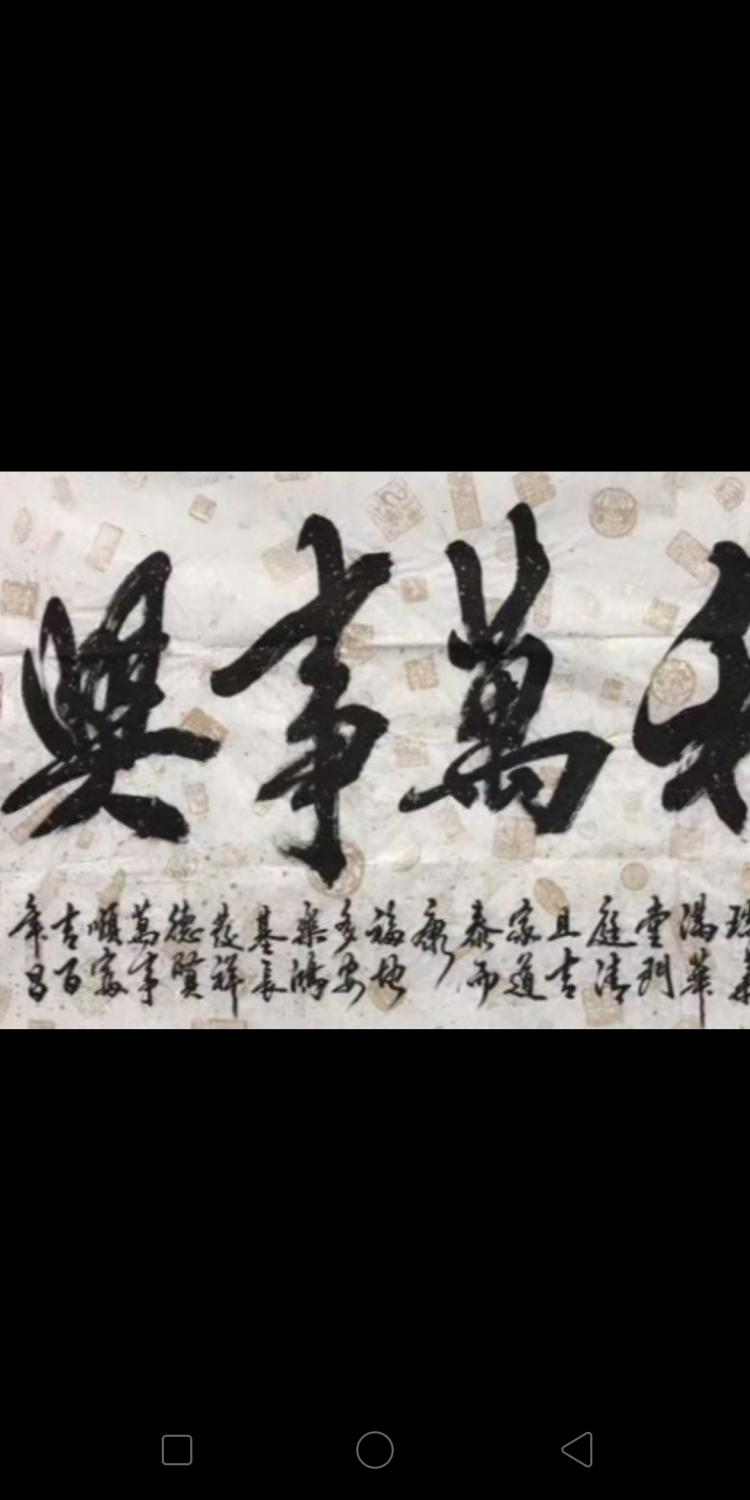 和萬事興
瑞氣
滿華
堂門
庭清
且吉
家道
泰而
康
福地
多安
樂鴻
基長
發祥
德賢
萬事
順家
吉百
年昌